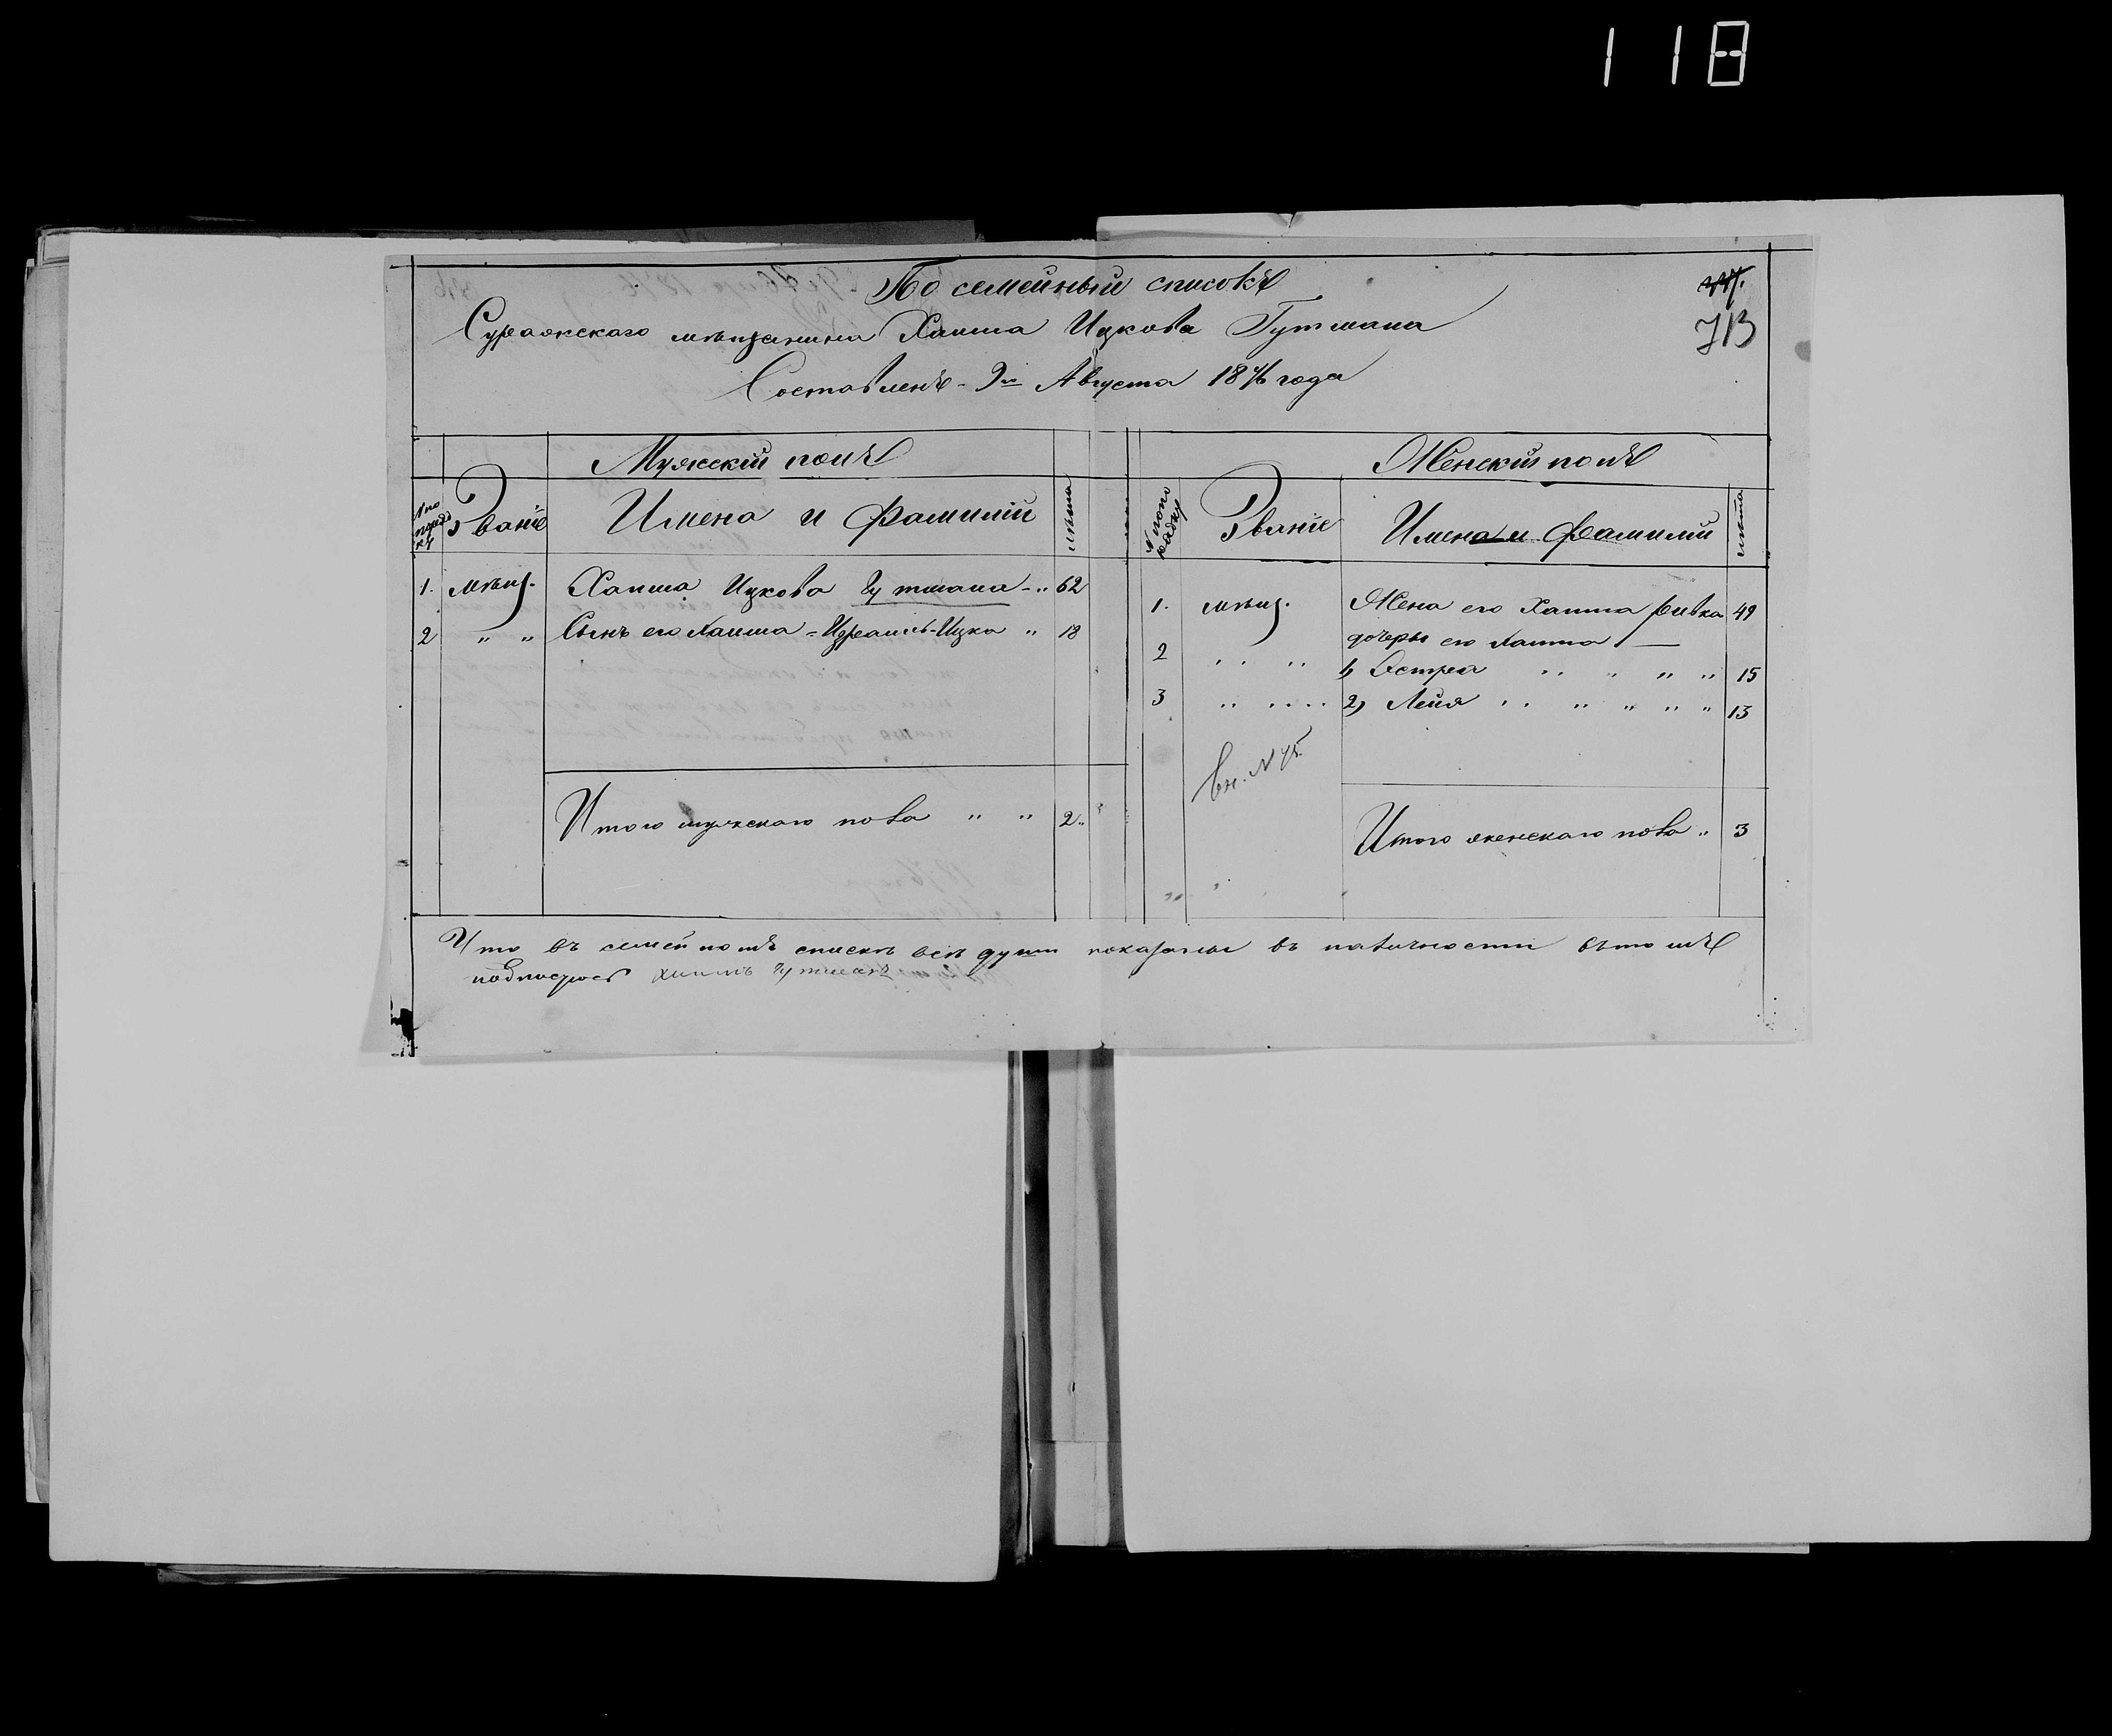 118
По семейный списокъ
Суражскаго мѣщанина Хаима Ицкова Гутмана
Составленъ - 9го Августа 1876 года
73
Мужскій полъ
Женскій полъ
№ по порядку
Званіе
Имена и фамиліи
лѣта
№ по порядку
Званіе
Имена и фамиліи
лѣта
1. мѣщ. Хаима Ицкова Гутмана - „ 62
2 „ „ Сынъ его Хаима - Израиль-Ицка „ 18
1. мѣщ. Жена его Хаима Ривка 49
дочеры его Хаима —
2 „ „ 1, Эстрея „ „ „ „ 15
3 „ „ „ 2, Лейя „ „ „ „ „ 13
Вх. N 75.
Итого мужскаго пола „ „ 2„
Итого женскаго пола „ 3
Что въ семейномъ спискѣ всѣ души показаны въ наличности въ томъ
подписуюсъ Хаимъ Гутманъ